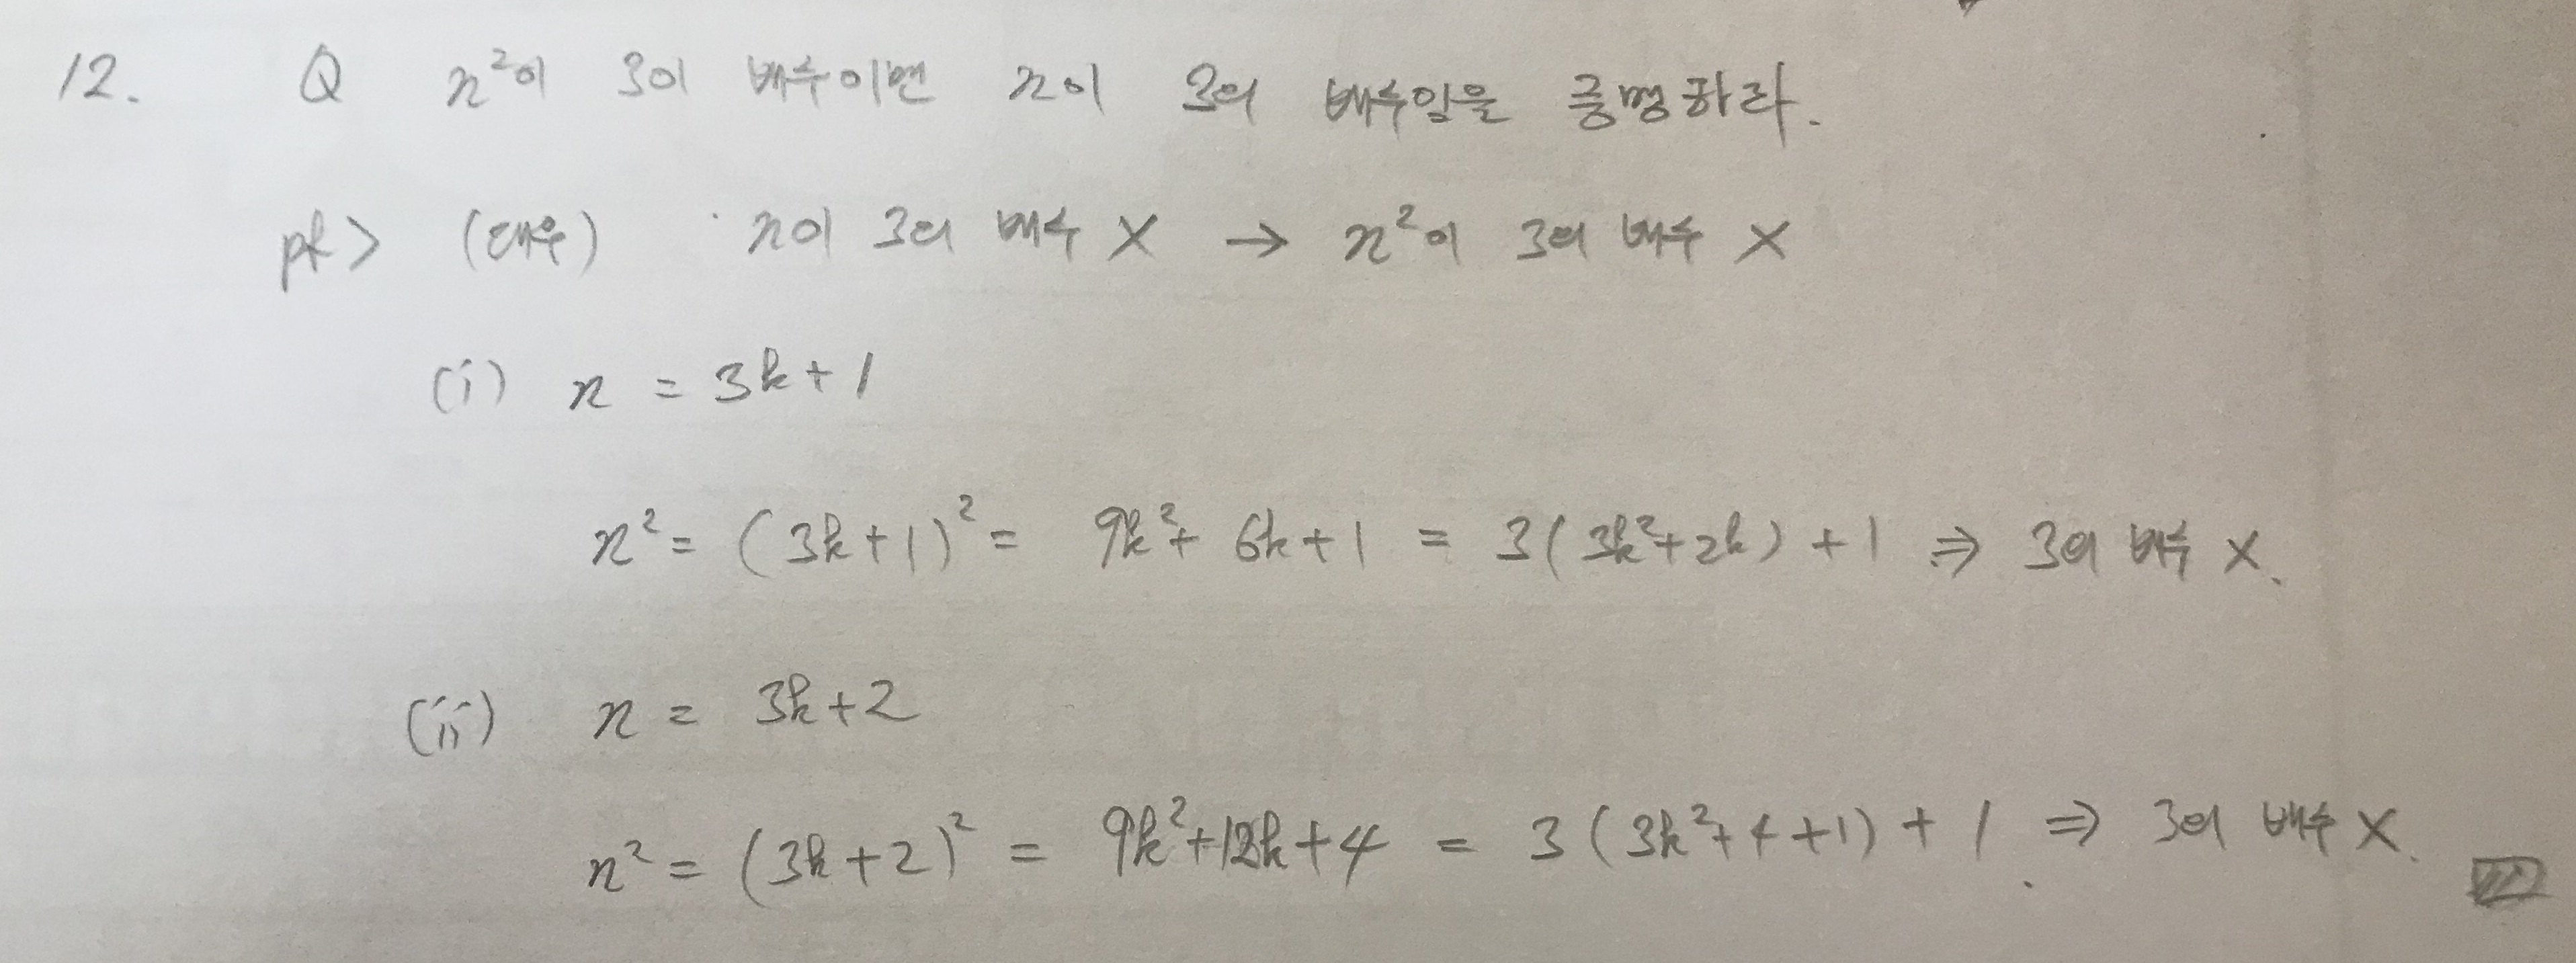 12. Q n²이 3이 배수이면 n이 3의 배수임을 증명하라.
pf> (대우) n이 3의 배수 X → n²이 3의 배수 X
(i) n = 3k+1
n² = (3k+1)² = 9k²+6k+1 = 3(3k²+2k)+1 ⇒ 3의 배수 X.
(ii) n = 3k+2
n² = (3k+2)² = 9k²+12k+4 = 3(3k²+4+1)+1. ⇒ 3의 배수 X.